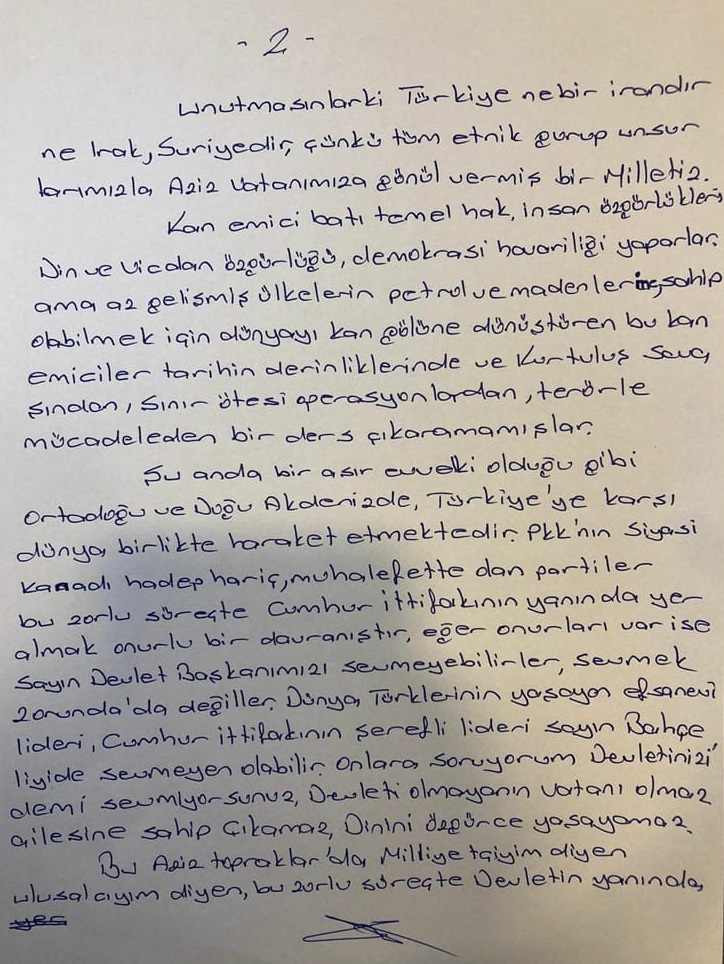 - 2 -
Unutmasınlarki Türkiye nebir irandır
ne Irak, Suriyedir, çünkü tüm etnik gurup unsur
larımızla Aziz Vatanımıza gönül vermiş bir Milletiz.
Kan emici batı temel hak, insan özgürlükleri,
Din ve Vicdan özgürlüğü, demokrasi havariliği yaparlar.
ama az gelişmiş ülkelerin petrol ve madenlerine sahip
olabilmek için dünyayı kan gölüne dönüştüren bu kan
emiciler tarihin derinliklerinde ve Kurtuluş Sava
şından, Sınır ötesi operasyonlardan, terörle
mücadeleden bir ders çıkaramamışlar.
Şu anda bir asır evvelki olduğu gibi
Ortadoğu ve Doğu Akdenizde, Türkiye'ye karşı
dünya birlikte haraket etmektedir. Pkk'nın Siyasi
kanadı hadep hariç, muhalefette olan partiler
bu zorlu süreçte Cumhur ittifakının yanında yer
almak onurlu bir davranıştır, eğer onurları var ise
Sayın Devlet Başkanımızı sevmeyebilirler, sevmek
zorunda'da değiller. Dünya Türklerinin yaşayan efsanevi
lideri, Cumhur ittifakının şerefli lideri sayın Bahçe
liyide sevmeyen olabilir. Onlara soruyorum Devletinizi
demi sevmiyorsunuz, Devleti olmayanın vatanı olmaz
ailesine sahip Çıkamaz, Dinini özgürce yaşayamaz.
Bu Aziz topraklar'da Milliyetçiyim diyen
ulusalcıyım diyen, bu zorlu süreçte Devletin yanında,
yer